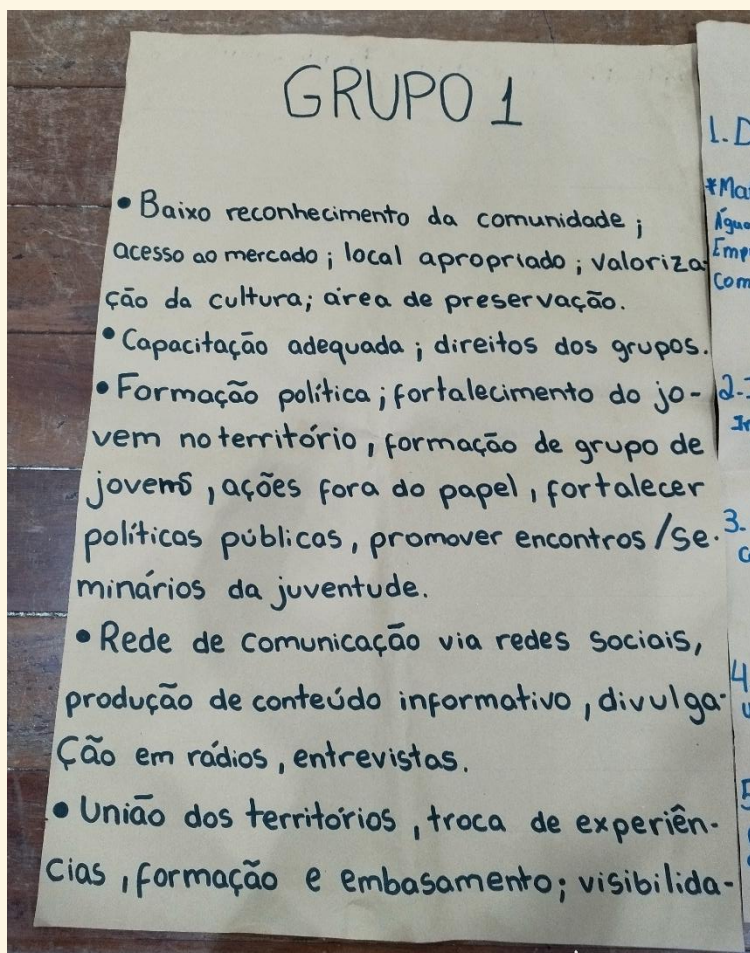 GRUPO 1
• Baixo reconhecimento da comunidade;
acesso ao mercado; local apropriado; valoriza-
ção da cultura; área de preservação.
• Capacitação adequada; direitos dos grupos.
• Formação política; fortalecimento do jo-
vem no território, formação de grupo de
jovens, ações fora do papel, fortalecer
políticas públicas, promover encontros/se-
minários da juventude.
• Rede de comunicação via redes sociais,
produção de conteúdo informativo, divulga-
ção em rádios, entrevistas.
• União dos territórios, troca de experiên-
cias, formação e embasamento; visibilida-
1. D
*Ma
Água
Emp
Com
2.
3.
4